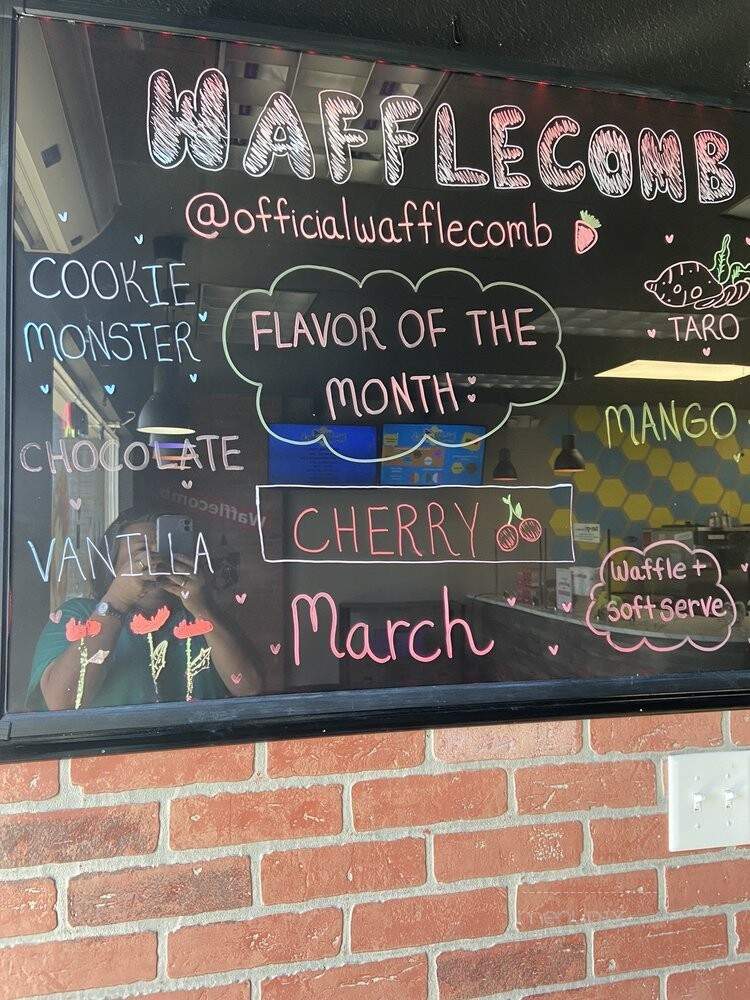 WAFFLECOMB
@officialwafflecomb
COOKIE
MONSTER
CHOCOLATE
VANILLA
FLAVOR OF THE
MONTH:
CHERRY
March
TARO
MANGO
Waffle +
soft serve
Wafflecomb